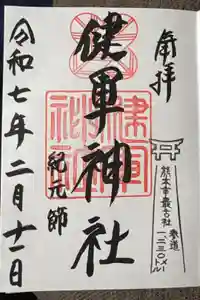 奉拝
熊本市最古社
参道
一、二三〇メートル
健軍神社
紀元節
令和七年二月十一日